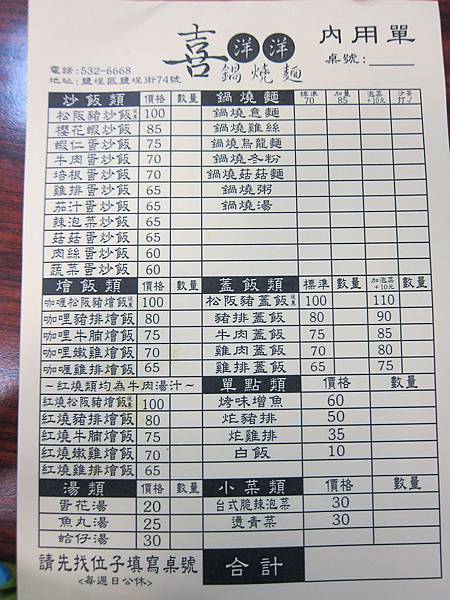 喜洋洋
鍋燒麵
內用單
電話:532-6668
桌號:
地址:鹽埕區鹽埕街74號
炒飯類 價格 數量
松阪豬炒飯 100
櫻花蝦炒飯 85
蝦仁蛋炒飯 75
牛肉蛋炒飯 70
培根蛋炒飯 70
雞排蛋炒飯 65
茄汁蛋炒飯 65
辣泡菜炒飯 65
菇菇蛋炒飯 65
肉絲蛋炒飯 60
蔬菜蛋炒飯 60
鍋燒麵 標準70 加量85 泡菜+10元 沙茶打✓
鍋燒意麵
鍋燒雞絲
鍋燒烏龍麵
鍋燒冬粉
鍋燒菇菇麵
鍋燒粥
鍋燒湯
燴飯類 價格 數量
咖喱松阪豬燴飯 100
咖哩豬排燴飯 80
咖哩牛腩燴飯 75
咖哩嫩雞燴飯 70
咖哩雞排燴飯 65
～紅燒類均為牛肉湯汁～
紅燒松阪豬燴飯 100
紅燒豬排燴飯 80
紅燒牛腩燴飯 75
紅燒嫩雞燴飯 70
紅燒雞排燴飯 65
蓋飯類 標準 數量 加泡菜+10元 數量
松阪豬蓋飯 100 110
豬排蓋飯 80 90
牛肉蓋飯 75 85
雞肉蓋飯 70 80
雞排蓋飯 65 75
單點類 價格 數量
烤味增魚 60
炸豬排 50
炸雞排 35
白飯 10
湯類 價格 數量
蛋花湯 20
魚丸湯 25
蛤仔湯 30
小菜類 價格 數量
台式脆辣泡菜 30
燙青菜 30
請先找位子填寫桌號
<每週日公休>
合計